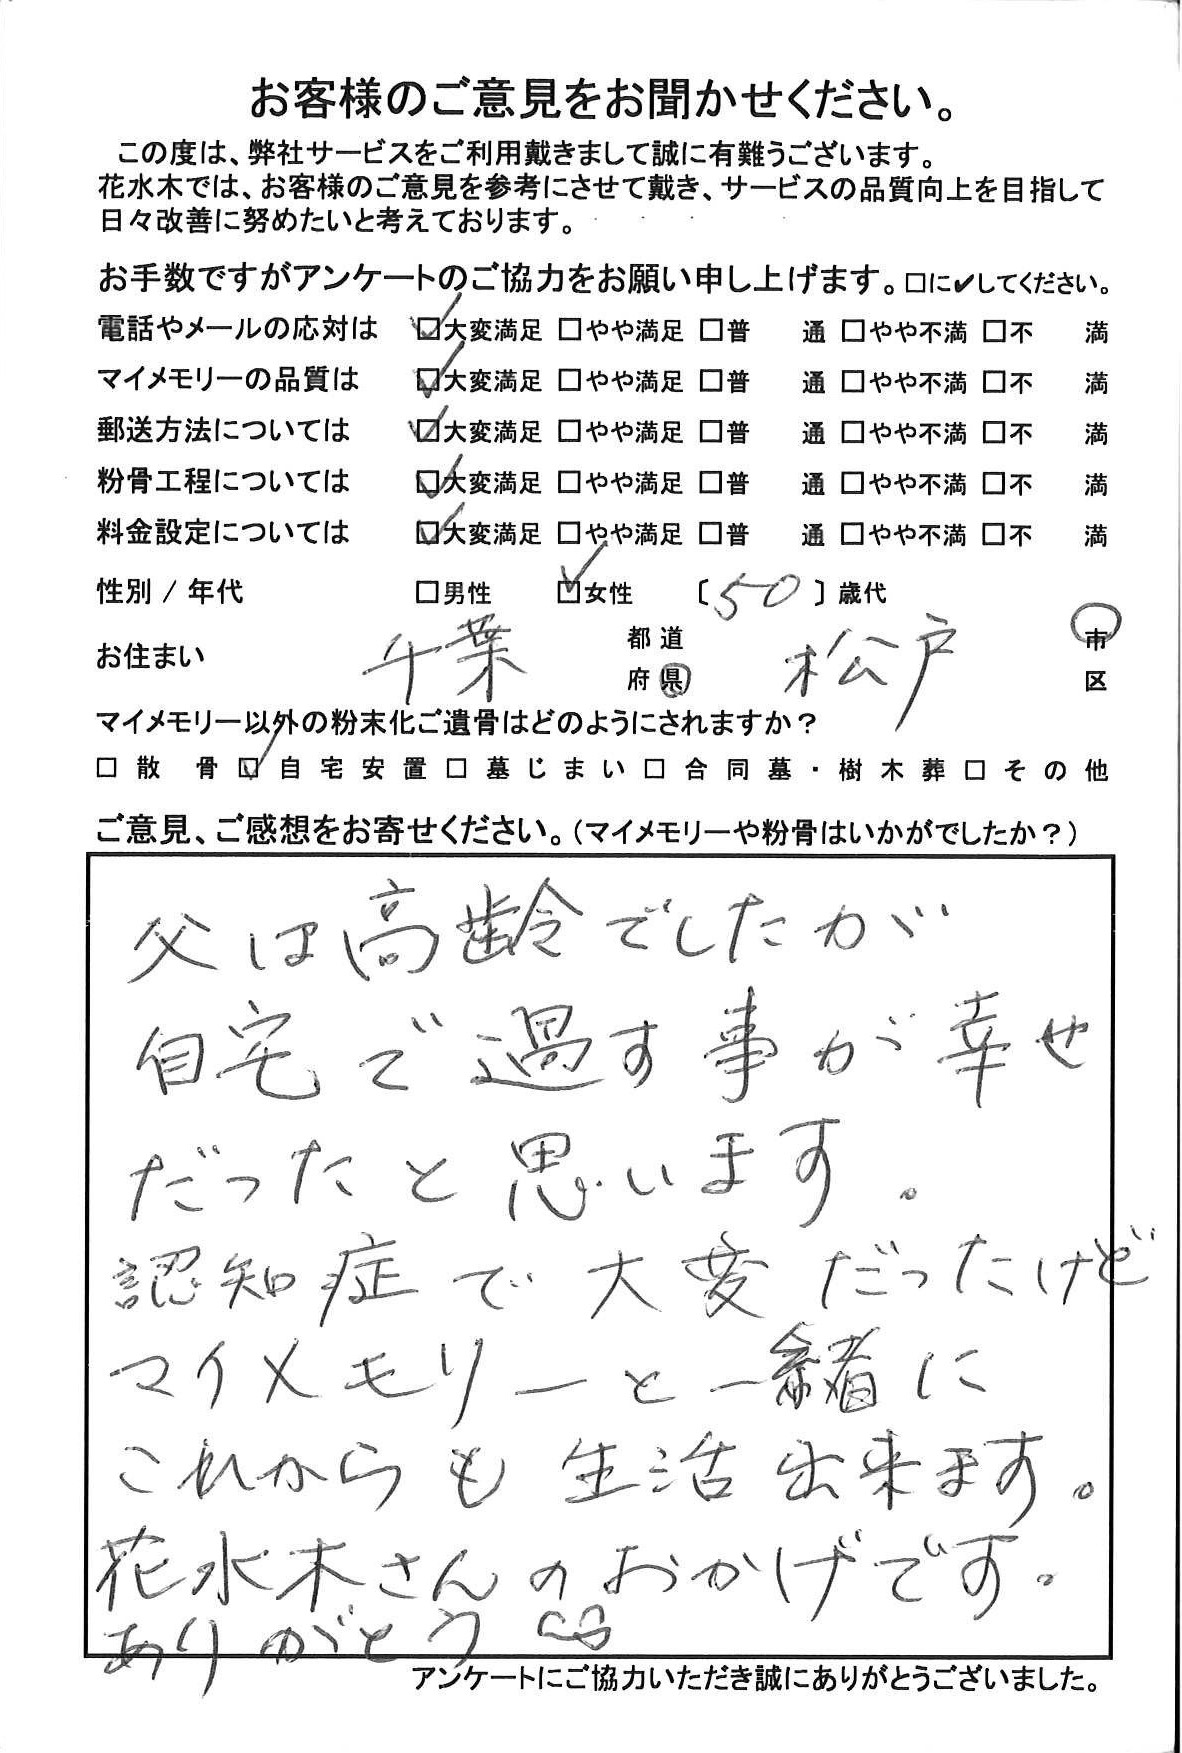 お客様のご意見をお聞かせください。
この度は、弊社サービスをご利用戴きまして誠に有難うございます。
花水木では、お客様のご意見を参考にさせて戴き、サービスの品質向上を目指して
日々改善に努めたいと考えております。
お手数ですがアンケートのご協力をお願い申し上げます。□に✔してください。
電話やメールの応対は ☑大変満足 □やや満足 □普 通 □やや不満 □不 満
マイメモリーの品質は ☑大変満足 □やや満足 □普 通 □やや不満 □不 満
郵送方法については ☑大変満足 □やや満足 □普 通 □やや不満 □不 満
粉骨工程については ☑大変満足 □やや満足 □普 通 □やや不満 □不 満
料金設定については ☑大変満足 □やや満足 □普 通 □やや不満 □不 満
性別 / 年代 □男性 ☑女性 〔50〕歳代
お住まい 千葉 都道府県 松戸 市区
マイメモリー以外の粉末化ご遺骨はどのようにされますか？
□散 骨 ☑自宅安置 □墓じまい □合同墓・樹木葬 □その他
ご意見、ご感想をお寄せください。（マイメモリーや粉骨はいかがでしたか？）
父は高齢でしたが
自宅で過す事が幸せ
だったと思います。
認知症で大変だったけど
マイメモリーと一緒に
これからも生活出来ます。
花水木さんのおかげです。
ありがとう
アンケートにご協力いただき誠にありがとうございました。